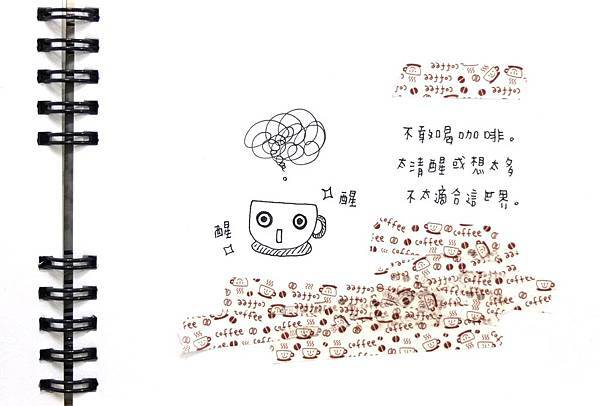 coffee
coffee coffee
不敢喝咖啡。
太清醒或想太多
不太適合這世界。
醒
醒
coffee coffee
coffee
coffee coffee
coffee coffee
coffee coffee